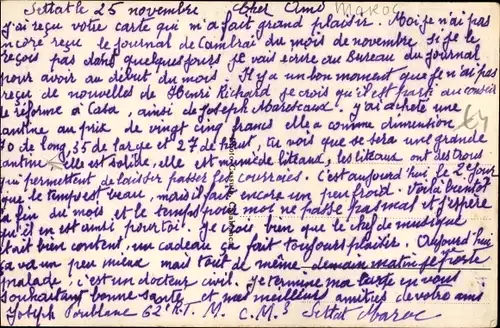 Settat le 25 novembre Cher Ami MAROC
J'ai reçu votre carte qui m'a fait grand plaisir. Moi je n'ai pas
encore reçu le journal de Cambrai du mois de novembre si je le
reçois pas dans quelques jours je vais écrire au Bureau du Journal
pour avoir au début du mois. Il y a un bon moment que je n'ai pas
reçu de nouvelles de Henri Richard je crois qu'il est parti au conseil
de réforme à Casa, ainsi de Joseph j'ai achetée une
cantine au prix de vingt cinq francs elle a comme dimention
70 de long, 35 de large et 27 de haut, tu vois que se sera une grande
cantine elle est solide, elle est munie de liteaux, les liteaux ont des trous
qui permettent de laisser passer les courroies. C'est aujourd'hui le 2e jour
que le temps est beau, mais il fait encore un peu froid. Voilà bientôt
la fin du mois, et le temps pour moi ne passe pas mal et j'espère
qu'il en est ainsi pour toi. Je crois bien que le chef de musique
était bien content, un cadeau ça fait toujours plaisir. Aujourd'hui
ça va un peu mieux mais tout de même demain matin je porte
malade, c'est un docteur civil. Je termine ma carte en vous
souhaitant bonne santé et mes meilleurs amitiés de votre ami
Joseph 62e R.T.M. C.M.3 Settat Maroc